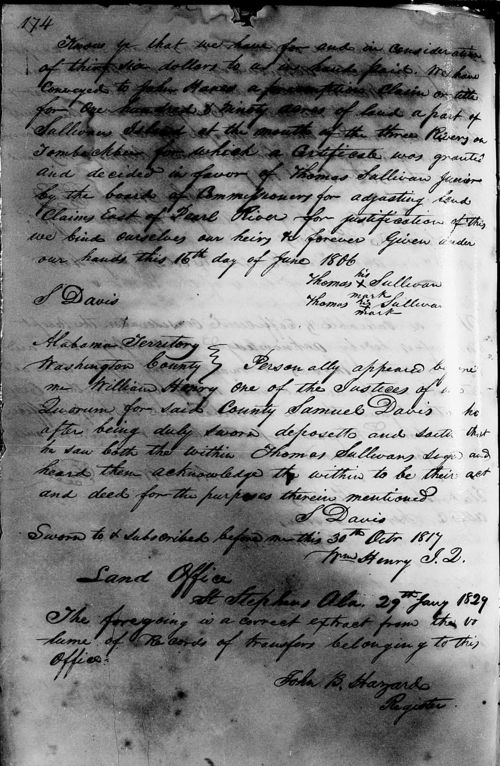 174
Know ye that we have for and in consideration
of thirty six dollars to us in hand paid. We have
Conveyed to John Hanes a preemption Claim or title
for One hundred & Ninety acres of land a part of
Sullivan Island at the mouth of the three Rivers on
Tombeckbee for which a Certificate was granted
and decided in favor of Thomas Sullivan Junior
by the board of Commissioners for adjusting land
Claims East of Pearl River for justification of this
we bind ourselves our heirs &c forever Given under
our hands this 16th day of June 1806
Thomas his x mark Sullivan
S Davis
Thomas his x mark Sullivan
Alabama Territory
Washington County } Personally appeared before
me William Henry One of the Justices of the
Quorum for said County Samuel Davis who
after being duly sworn deposeth and saith that
he saw both the within Thomas Sullivans sign and
heard them acknowledge the within to be their act
and deed for the purposes therein mentioned
S Davis
Sworn to & subscribed before me this 30th Octr 1817
Wm Henry J. Q.
Land Office
St Stephens Ala. 29th Jany 1829
The foregoing is a correct extract from the vo
lume of Records of transfers belonging to this
Office.
John B. Hazard
Register